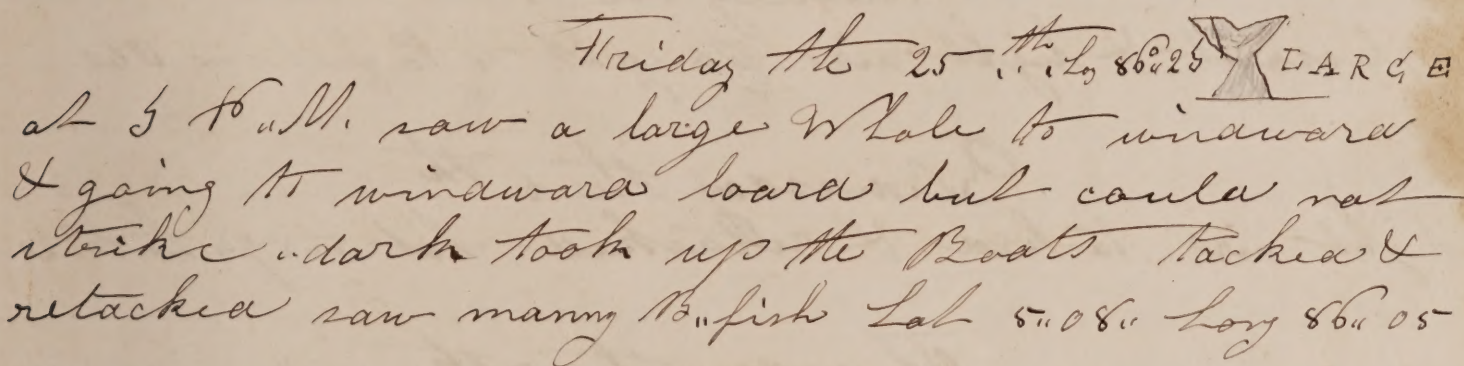 Friday the 25.th. Lg 86°25 LARGE
at 5 P,,M. saw a large Whale to windward
& going to windward loard but could not
strike ,,dark took up the Boats tacked &
retacked saw manny B,,fish Lat 5,,08,, Long 86,,05